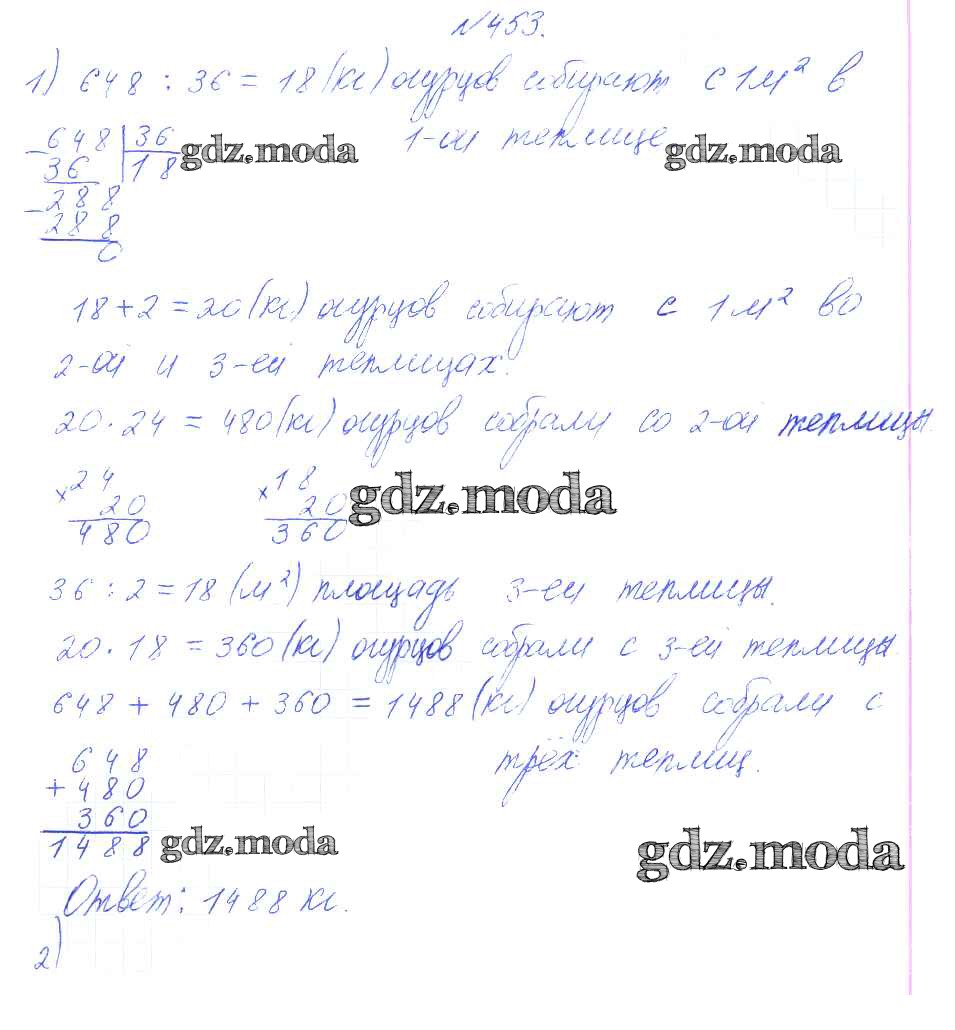 №453.
1) 648 : 36 = 18 (кг) огурцов собирают с 1м² в
1-ой теплице
- 648 | 36
36 | 18
gdz.moda
gdz.moda
- 288
288
0
18 + 2 = 20 (кг) огурцов собирают с 1м² во
2-ой и 3-ей теплицах.
20 · 24 = 480 (кг) огурцов собрали со 2-ой теплицы.
× 24
20
480
× 18
20
360
gdz.moda
36 : 2 = 18 (м²) площадь 3-ей теплицы.
20 · 18 = 360 (кг) огурцов собрали с 3-ей теплицы.
648 + 480 + 360 = 1488 (кг) огурцов собрали с
трёх теплиц.
648
+ 480
360
1488
gdz.moda
gdz.moda
Ответ: 1488 кг.
2)